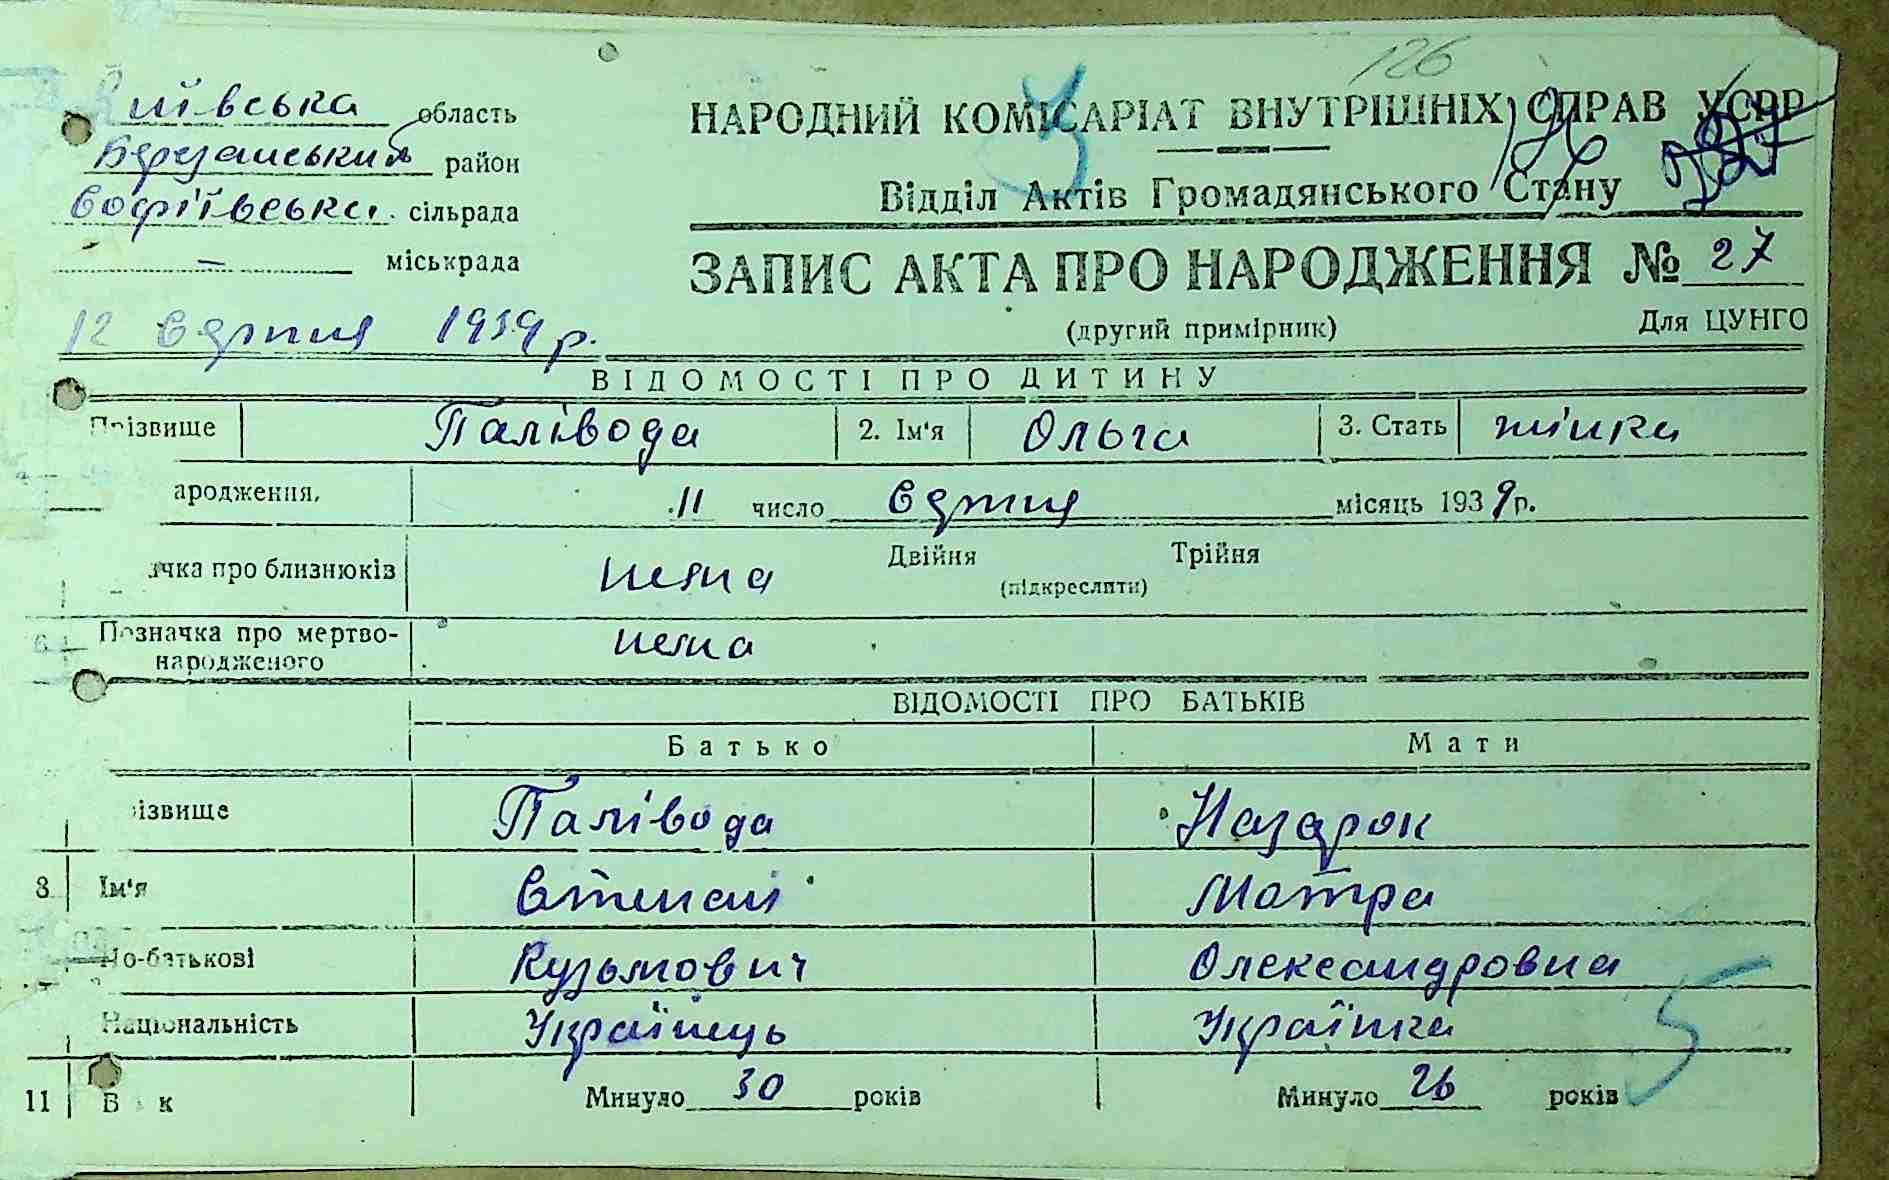 126
Київська область
Березанський район
Софіївська сільрада
— міськрада
12 серпня 1939 р.
НАРОДНИЙ КОМІСАРІАТ ВНУТРІШНІХ СПРАВ УСРР
Відділ Актів Громадянського Стану
ЗАПИС АКТА ПРО НАРОДЖЕННЯ № 27
(другий примірник) Для ЦУНГО
ВІДОМОСТІ ПРО ДИТИНУ
Прізвище Палівода 2. Ім'я Ольга 3. Стать жінка
ародження, 11 число серпня місяць 1939 р.
ачка про близнюків нема Двійня Трійня
(підкреслити)
6 Позначка про мертво-
народженого нема
ВІДОМОСТІ ПРО БАТЬКІВ
Батько Мати
ізвище Палівода Назарок
8 Ім'я Степан Мотра
По-батькові Кузьмович Олександровна
Національність Українець Українка
11 Вік Минуло 30 років Минуло 26 років
5